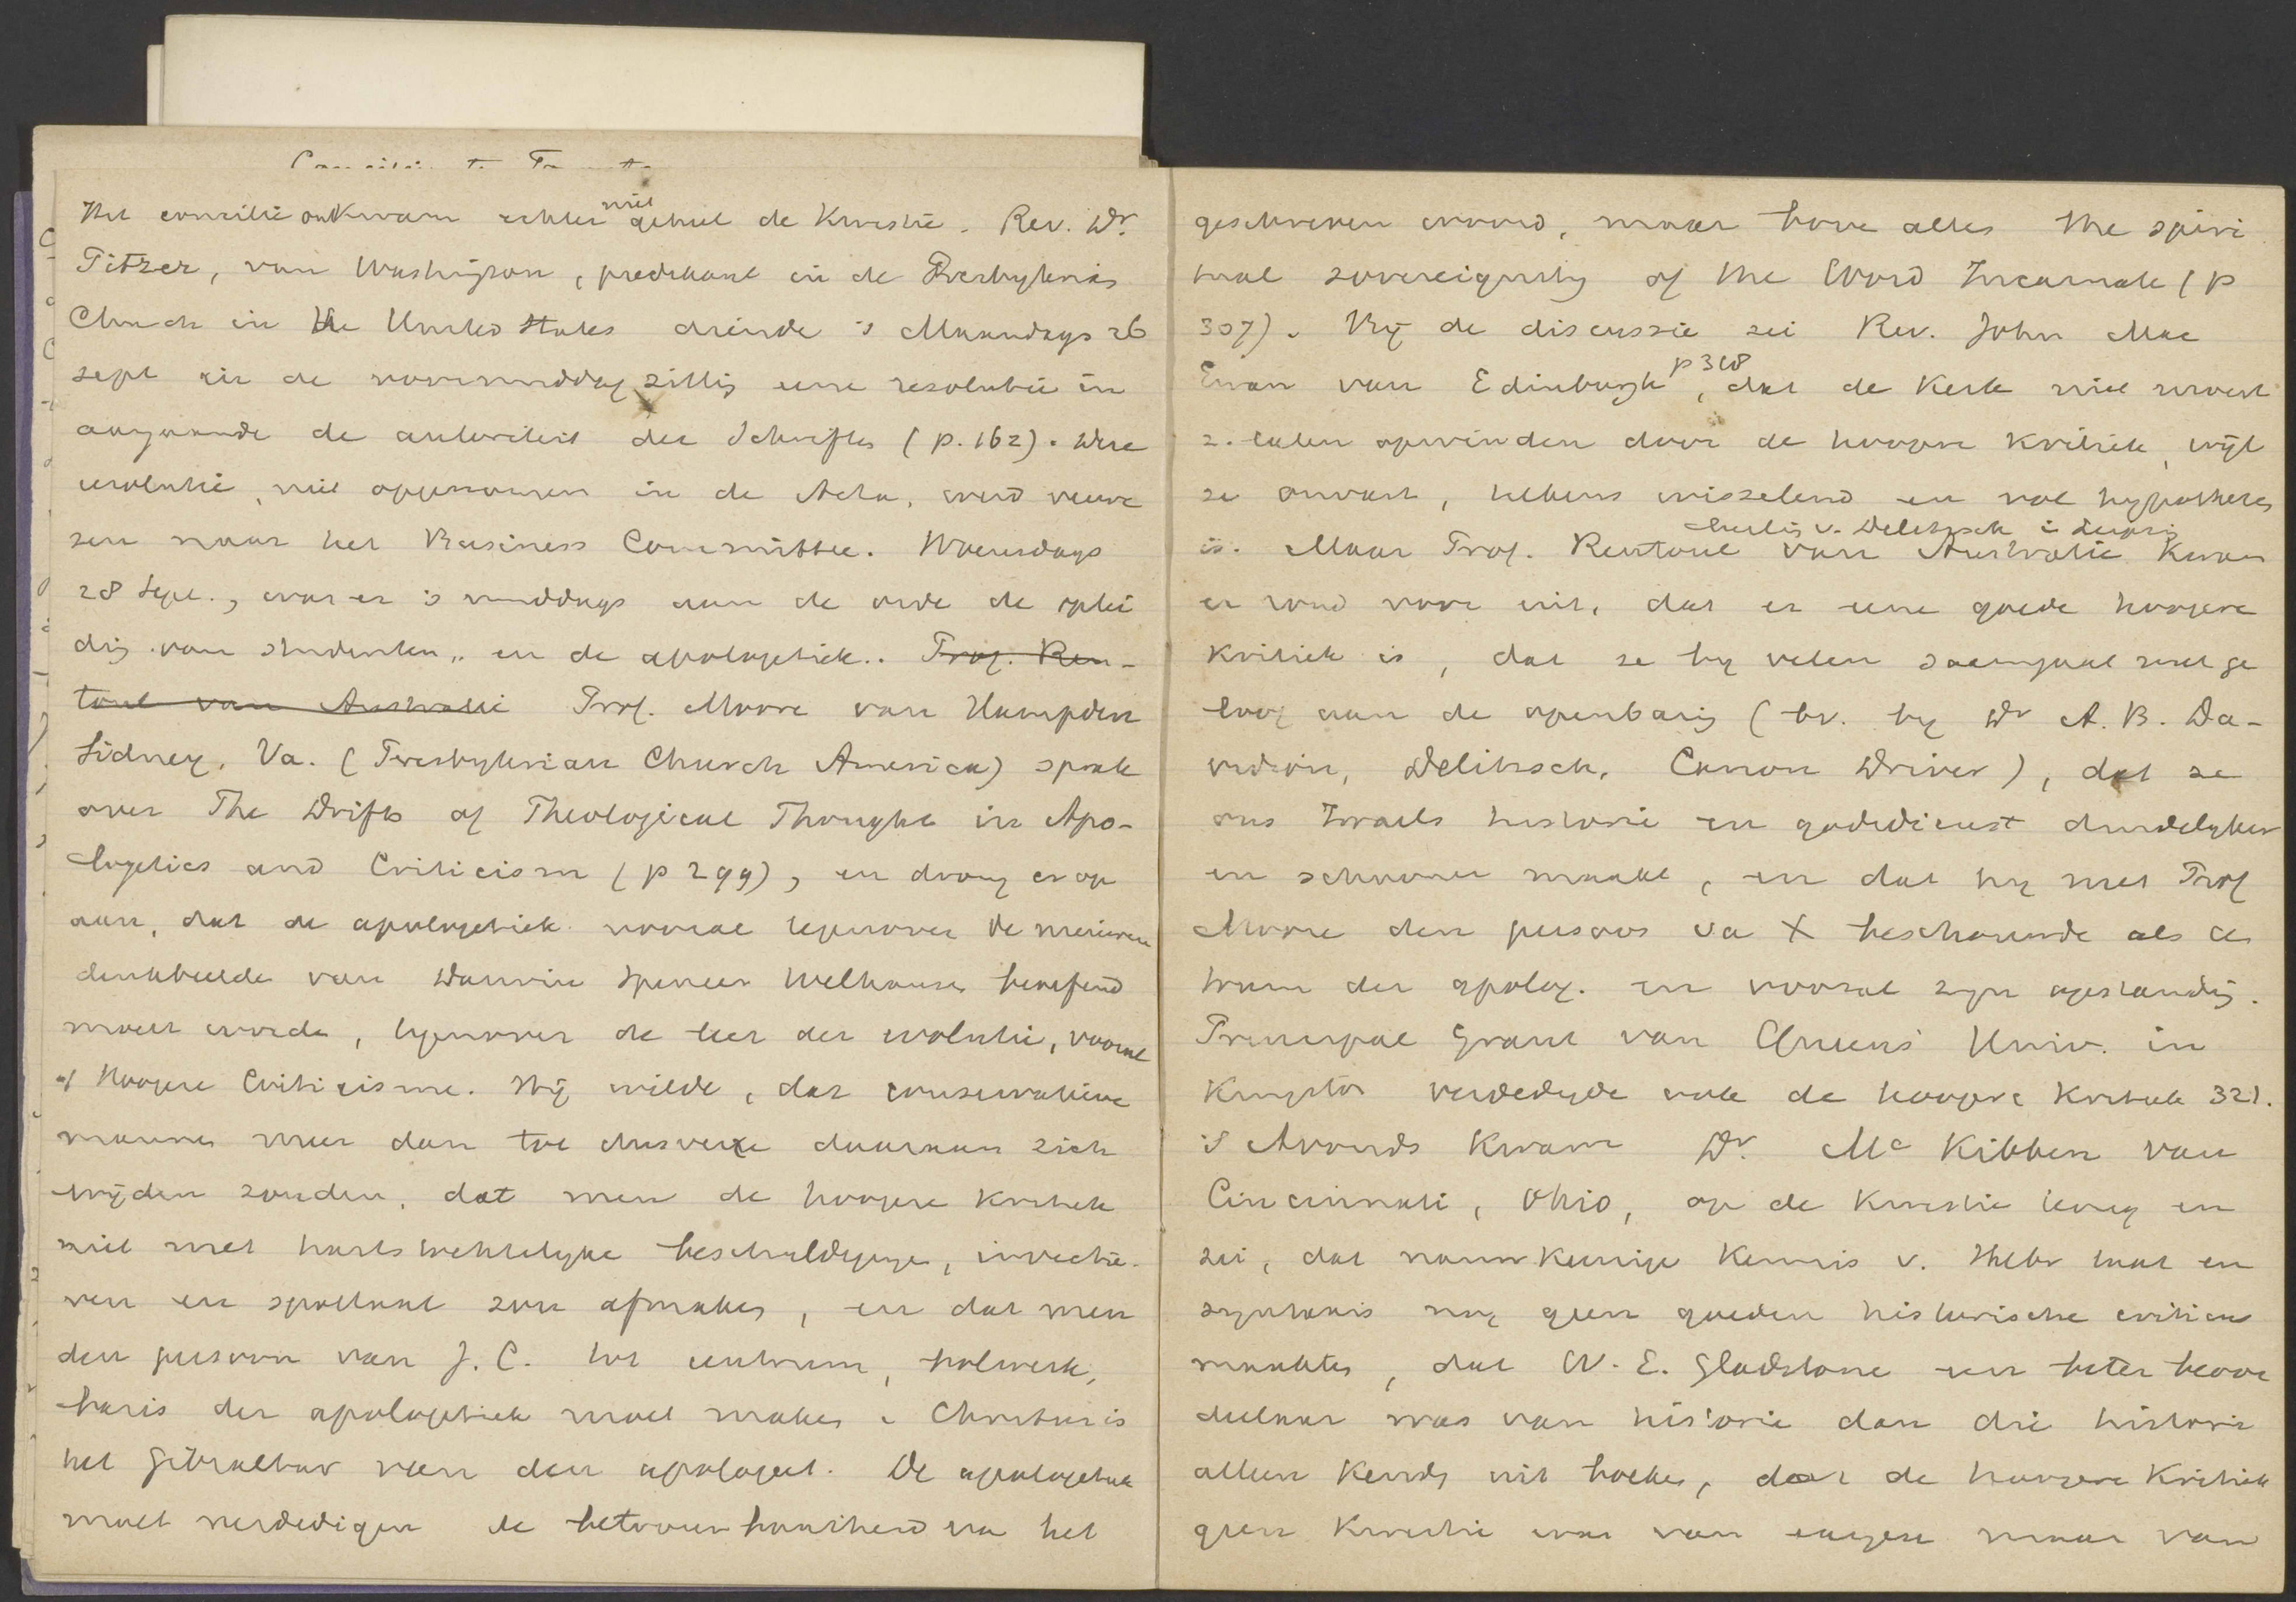 Het concilie ontkwam echter niet geheel de kwestie. Rev. Dr.
Pitzer, van Washington, predikant in de Presbyterias
Church in the United States diende 's Maandags 26
sept in de voormiddagzittig eene resolutie in
aangaande de autoriteit der Schriftes (p. 162). Deze
resolutie, niet opgenomen in de Acta, werd verwe
zen naar het Business Committee. Woensdags
28 Sept., was er 's middags aan de orde de oplei
dig van studenten, en de apologetiek. Prof. Ren-
toul van Australie Prof. Moore van Hampden
Sidney, Va. (Presbyterian Church America) sprak
over The Drifts of Theological Thought in Apo-
logetics and Criticism (p 299), en drong er op
aan, dat de apologetiek vooral tegenover de nieuwere
denkbeelde van Darwin Spencer Welhausen beoefend
moest worde, tegenover de leer der evolutie, vooral
of Hoogere Criticisme. Hij wilde, dat conservatieve
mannen meer dan tot dusverre daaraan zich
wijden zouden, dat men de hoogere kritiek
niet met hartstochtelyke beschuldigingen, invectie-
ven en spottaal zou afmaken, en dat men
den persoon van J. C. tot centrum, bolwerk,
basis der apologetiek moet maken. Christus is
het Gibraltar van den apologeet. De apologetiek
moet verdedigen de betrouwbaarheid van het
geschreven woord, maar bove alles the spiri
tual sovereignty of the Word Incarnate (p
307). Bij de discussie zei Rev. John Mac
Ewan van Edinburgh p 318, dat de kerk niet moest
z. laten opwinden door de hoogere kritiek, wijl
ze onvast, telkens wisselend en vol hypotheses
is. Maar Prof. Rentoul van Australie kwam
leerlig v. Delitzsch i Leipzig
er rond voor uit, dat er eene goede hoogere
kritiek is, dat ze by velen saamgaat met ge
loof aan de openbarig (bv. by Dr A. B. Da-
vidson, Delitzsch, Canon Driver), dat ze
ons Israels historie en godsdienst duidelyker
en schooner maakt, en dat hy met Prof
Moore den persoon va X beschouwde als ce
trum der apolog. en vooral zyn opstandig.
Principal Grant van Queens' Univ. in
Kingston verdedigde ook de hoogere kritiek 321.
's Avonds kwam Dr. Mc Kibben van
Cincinnati, Ohio, op de kwestie terug en
zei, dat nauwkeurige kennis v. Hebr taal en
syntaxis nog geen goeden historische criticus
maakten, dat W. E. Gladstone een beter beoor
deelaar was van historie dan die historie
alleen kendy uit boeken, dat de hoogere kritiek
geen kwestie was van maar van